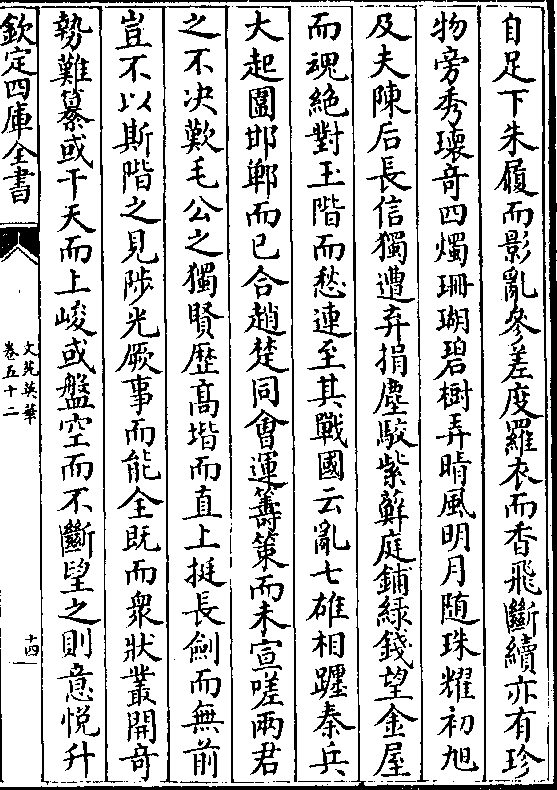 自足下朱履而影亂參差度羅衣而香飛斷續亦有珍
物旁秀瓌竒四燭珊瑚碧樹弄晴風明月随珠耀初旭
及夫陳后長信獨遭弃捐塵駁紫蘚庭鋪綠錢望金屋
而魂絶對玉階而愁連至其戰國云亂七雄相躔秦兵
大起圍邯鄲而已合趙楚同㑹運籌策而未宣嗟兩君
之不决歎毛公之獨賢歴髙堦而直上挺長劍而無前
豈不以斯階之見陟光厥事而能全既而衆狀叢開竒
勢難纂或干天而上峻或盤空而不斷望之則意悦升
欽定四庫全書
文苑英華
卷五十二
十四